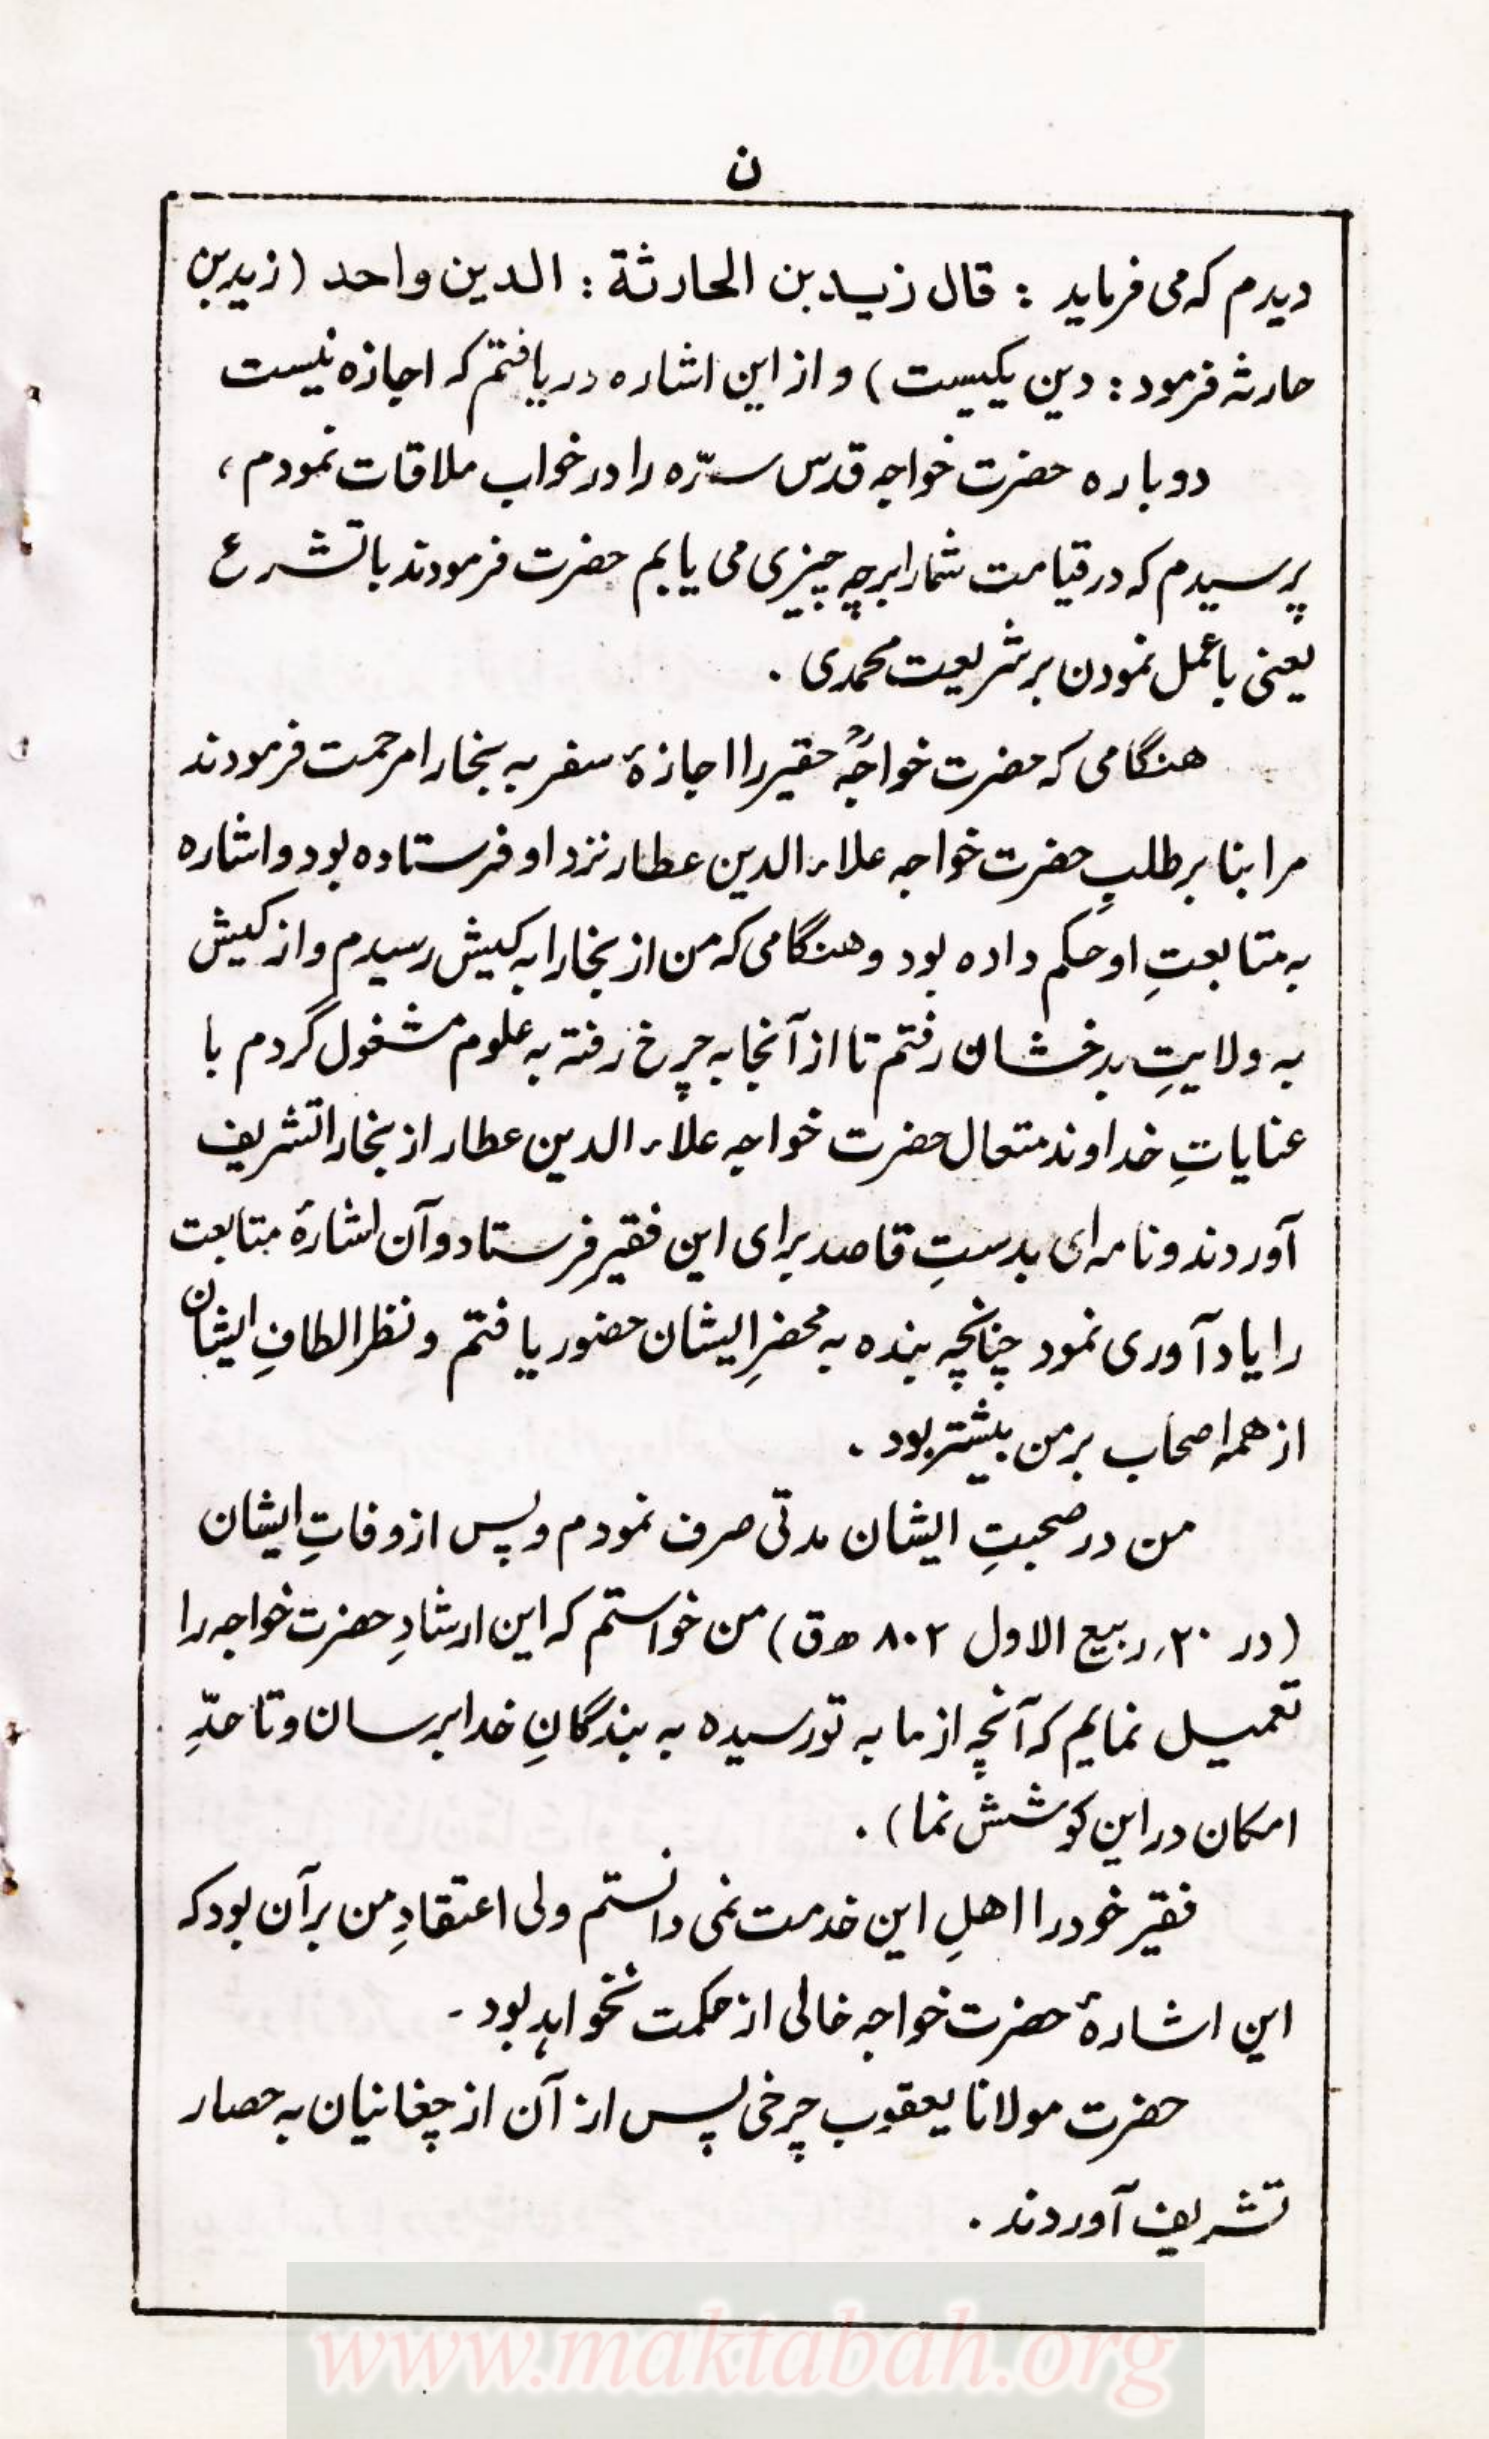 ن
دیدم که می فرماید : قال زید بن الحارثة : الدین واحد (زید بن
حارثه فرمود : دین یکیست) و از این اشاره دریافتم که اجازه نیست
دوباره حضرت خواجه قدس سرّه را در خواب ملاقات نمودم ،
پرسیدم که در قیامت شما را بر چه چیزی می یابم حضرت فرمودند با تشرع
یعنی با عمل نمودن بر شریعت محمدی .
هنگامی که حضرت خواجهؒ حقیر را اجازهٔ سفر به بخارا مرحمت فرمودند
مرا بنا بر طلبِ حضرت خواجه علاء الدین عطار نزد او فرستاده بود و اشاره
به متابعتِ او حکم داده بود و هنگامی که من از بخارا به کیش رسیدم و از کیش
به ولایتِ بدخشان رفتم تا از آنجا به چرخ رفته به علوم مشغول گردم با
عنایاتِ خداوند متعال حضرت خواجه علاء الدین عطار از بخارا تشریف
آوردند و نامه ای بدستِ قاصد برای این فقیر فرستاد و آن اشارهٔ متابعت
را یاد آوری نمود چنانچه بنده به محضرِ ایشان حضور یافتم و نظر الطافِ ایشان
از همه اصحاب بر من بیشتر بود .
من در صحبتِ ایشان مدتی صرف نمودم و پس از وفاتِ ایشان
(در ۲۰ ربیع الاول ۸۰۲ ه ق) من خواستم که این ارشادِ حضرت خواجه را
تعمیل نمایم که آنچه از ما به تو رسیده به بندگانِ خدا برسان و تا حدِّ
امکان در این کوشش نما) .
فقیر خود را اهلِ این خدمت نمی دانستم ولی اعتقادِ من بر آن بود که
این اشارهٔ حضرت خواجه خالی از حکمت نخواهد بود -
حضرت مولانا یعقوب چرخی پس از آن از چغانیان به حصار
تشریف آوردند .
www.maktabah.org